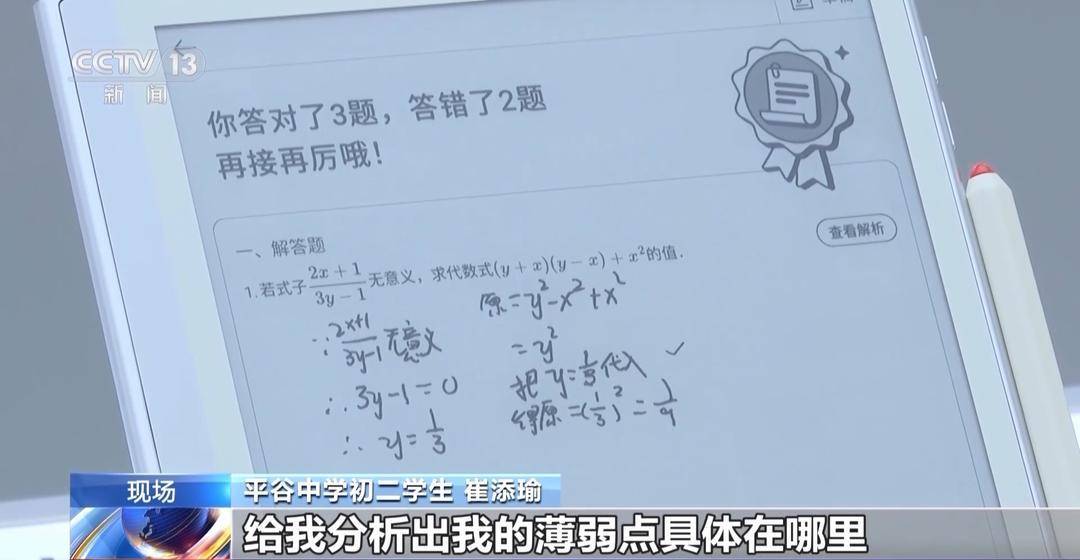 CCTV 13
新闻
你答对了3题，答错了2题
再接再厉哦！
一、解答题
查看解析
1.若式子 (2x+1)/(3y-1) 无意义，求代数式(y+x)(y-x)+x²的值.
∵ (2x+1)/(3y-1) 无意义
∴ 3y-1=0
∴ y=1/3
原=y²-x²+x²
=y²
把 y=1/3 代入
得原=(1/3)²=1/9
现场
平谷中学初二学生 崔添瑜
给我分析出我的薄弱点具体在哪里